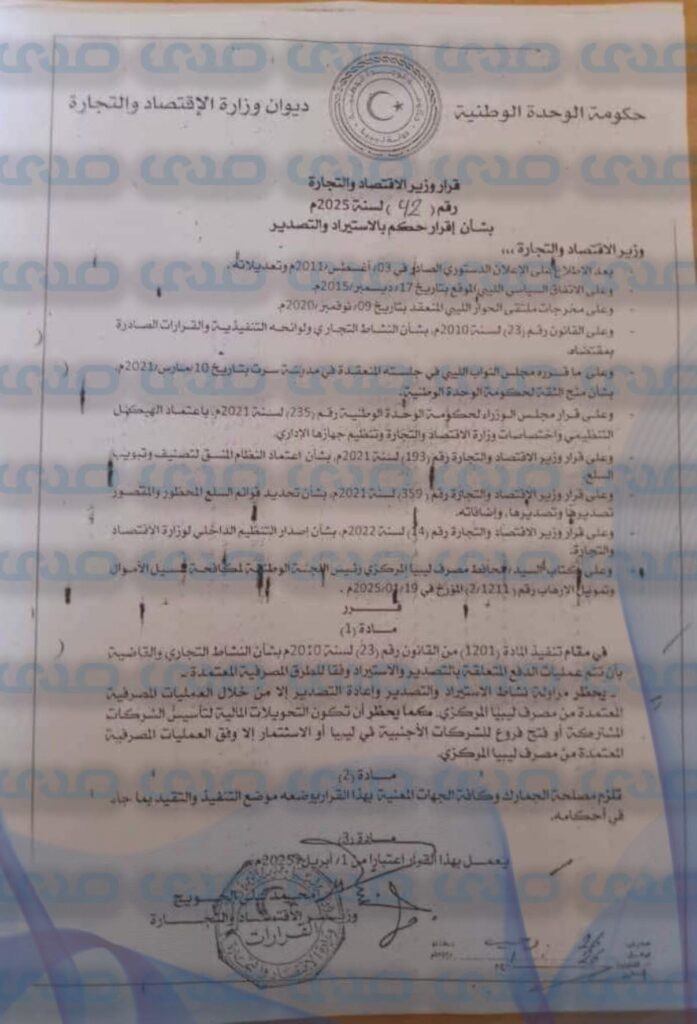 حكومة الوحدة الوطنية
ديوان وزارة الإقتصاد والتجارة
قرار وزير الاقتصاد والتجارة
رقم ( 42 ) لسنة 2025م
بشأن إقرار حكم بالاستيراد والتصدير
وزير الاقتصاد والتجارة ،،،
- بعد الاطلاع على الإعلان الدستوري الصادر في 03/أغسطس/2011م وتعديلاته.
- وعلى الاتفاق السياسي الليبي الموقع بتاريخ 17/ديسمبر/2015م.
- وعلى مخرجات ملتقى الحوار الليبي المنعقد بتاريخ 09/نوفمبر/2020م.
- وعلى القانون رقم (23) لسنة 2010م، بشأن النشاط التجاري ولوائحه التنفيذية والقرارات الصادرة
بمقتضاه.
- وعلى ما قرره مجلس النواب الليبي في جلسته المنعقدة في مدينة سرت بتاريخ 10/مارس/2021م،
بشأن منح الثقة لحكومة الوحدة الوطنية.
- وعلى قرار مجلس الوزراء لحكومة الوحدة الوطنية رقم (235) لسنة 2021م، باعتماد الهيكل
التنظيمي واختصاصات وزارة الاقتصاد والتجارة وتنظيم جهازها الإداري.
- وعلى قرار وزير الاقتصاد والتجارة رقم (193) لسنة 2021م، بشأن اعتماد النظام المنسق لتصنيف وتبويب
السلع.
- وعلى قرار وزير الاقتصاد والتجارة رقم (359) لسنة 2021م، بشأن تحديد قوائم السلع المحظور والمقصور
تصديرها وتصديرها، وإضافاته.
- وعلى قرار وزير الاقتصاد والتجارة رقم (14) لسنة 2022م، بشأن إصدار التنظيم الداخلي لوزارة الاقتصاد
والتجارة.
- وعلى كتاب السيد/ محافظ مصرف ليبيا المركزي رئيس اللجنة الوطنية لمكافحة غسيل الأموال
وتمويل الإرهاب رقم (2/1211) المؤرخ في 2025/01/19م.
قــــرر
مــادة (1)
في مقام تنفيذ المادة (1201) من القانون رقم (23) لسنة 2010م بشأن النشاط التجاري والقاضية
بأن تتم عمليات الدفع المتعلقة بالتصدير والاستيراد وفقا للطرق المصرفية المعتمدة.
- يحظر مزاولة نشاط الاستيراد والتصدير وإعادة التصدير إلا من خلال العمليات المصرفية
المعتمدة من مصرف ليبيا المركزي، كما يحظر أن تكون التحويلات المالية لتأسيس الشركات
المشتركة أو فتح فروع للشركات الأجنبية في ليبيا أو الاستثمار إلا وفق العمليات المصرفية
المعتمدة من مصرف ليبيا المركزي.
مــادة (2)
تلزم مصلحة الجمارك وكافة الجهات المعنية بهذا القرار بوضعه موضع التنفيذ والتقيد بما جاء
في أحكامه.
مــادة (3)
يعمل بهذا القرار اعتبارا من 1/أبريل/2025م.
محمد الحويج
وزيــر الاقتصاد والتجــارة
القرارات
صدى